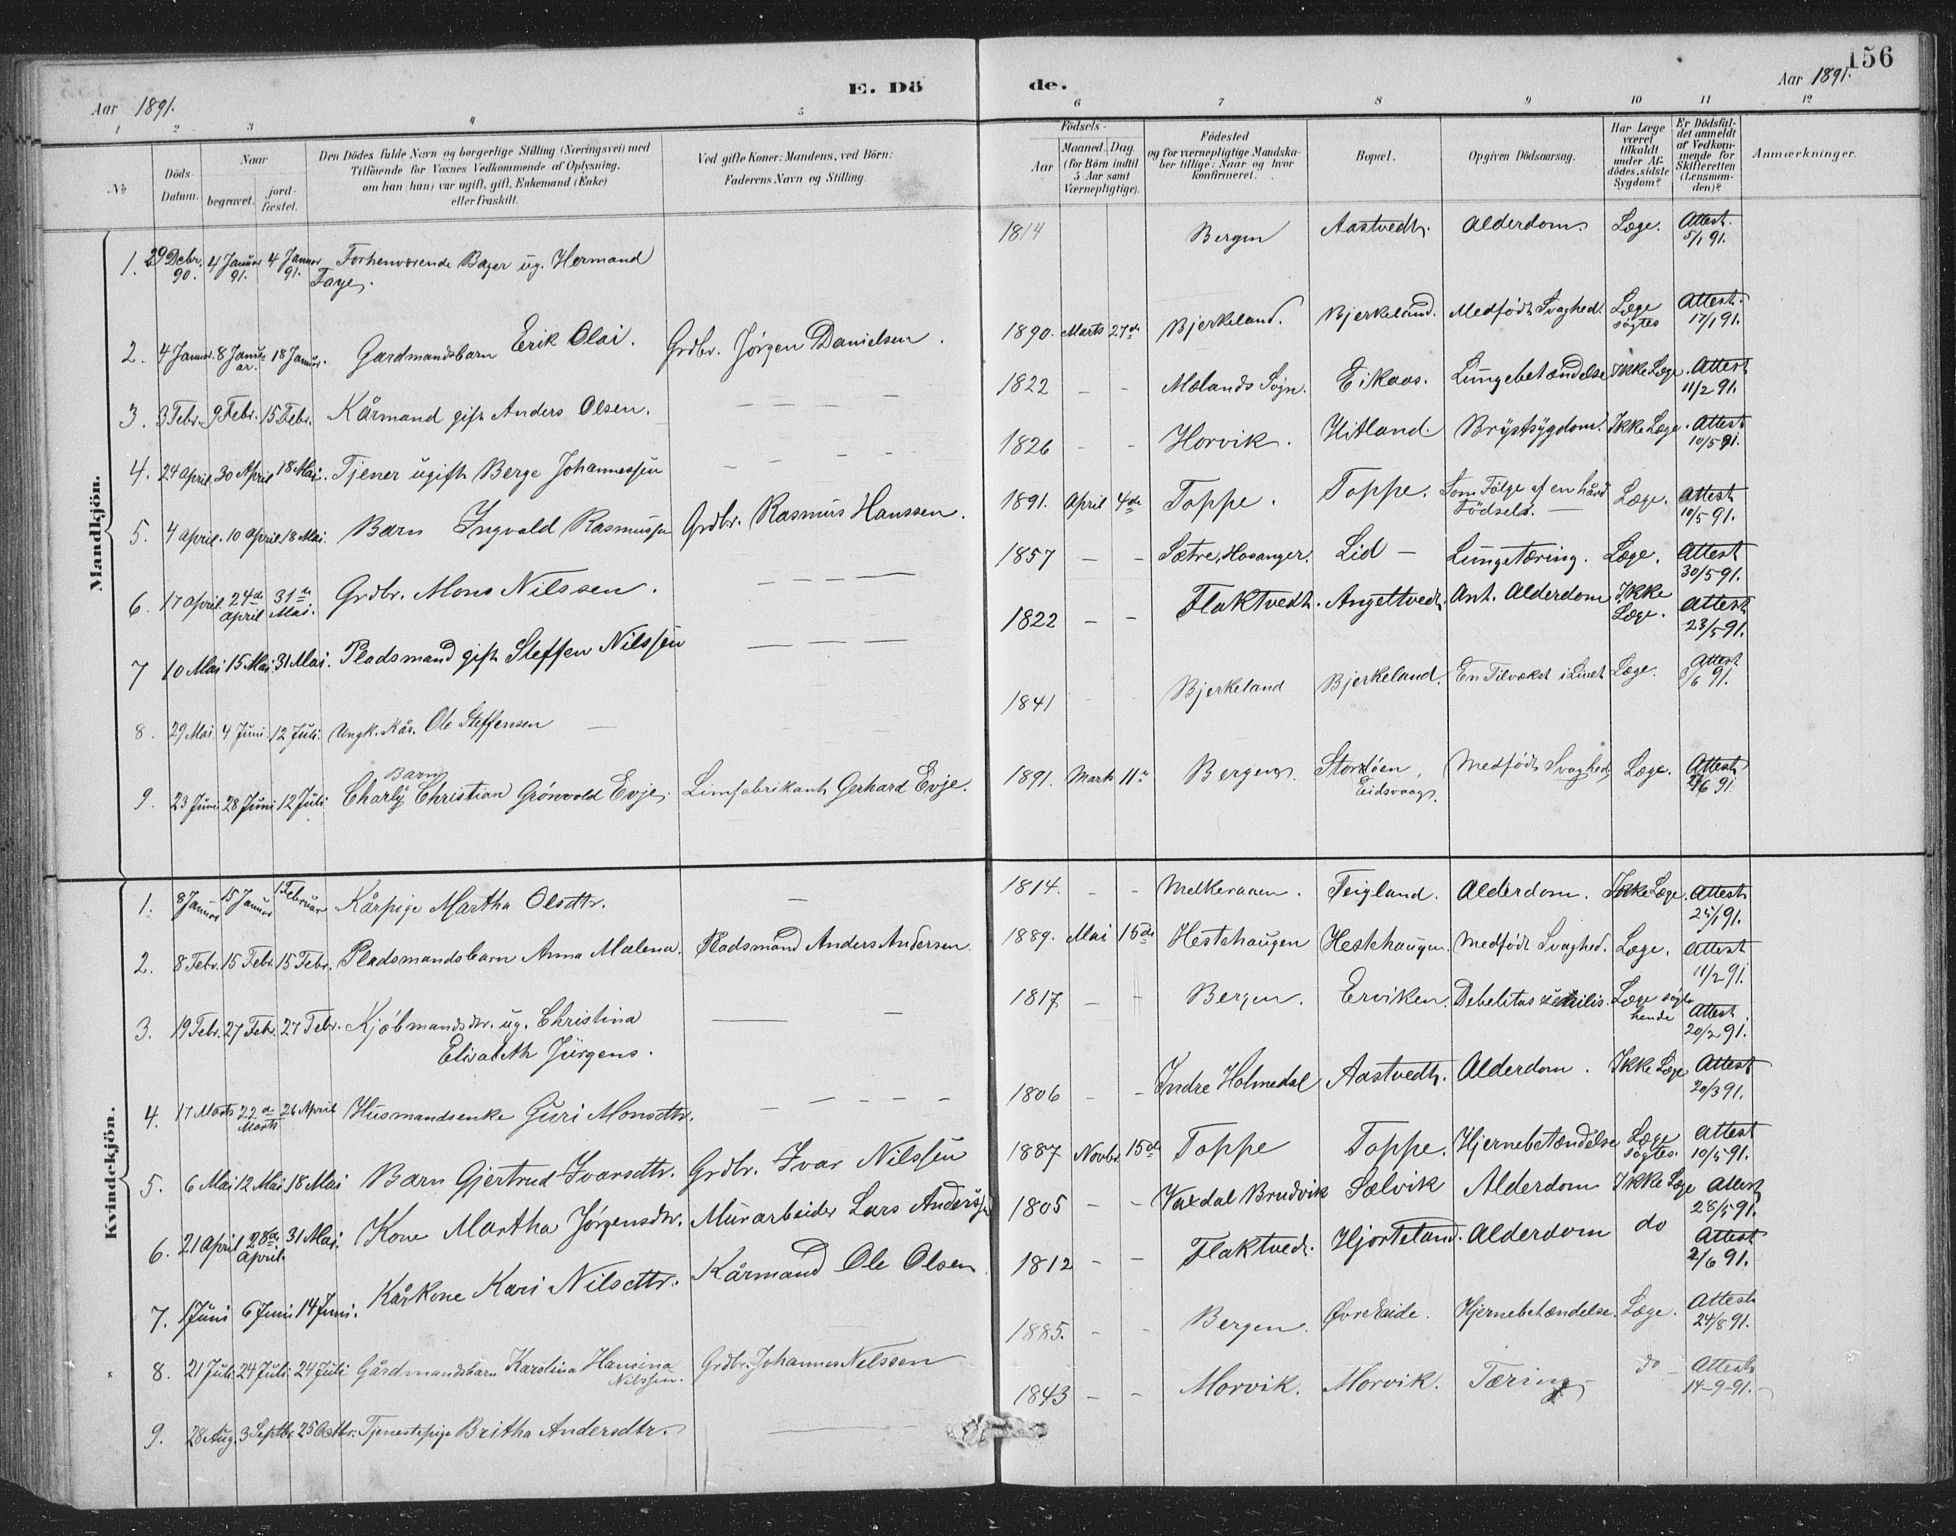 156
E. Döde.
Aar 1891. Aar 1891.
1 2 3 4 5 6 7 8 9 10 11 12
No
Döds-Datum.
Naar
begravet. jordfæstet.
Den Dödes fulde Navn og borgerlige Stilling (Næringsvei) med
Tilföiende for Voxnes Vedkommende af Oplysning,
om han (hun) var ugift, gift, Enkemand (Enke)
eller fraskilt.
Ved gifte Koner: Mandens, ved Börn:
Faderens Navn og Stilling.
Födsels-
Aar Maaned. Dag
(for Börn indtil 5 Aar samt Værnepligtige).
Födested
og for værnepligtige Mandskaber tillige: Naar og hvor konfirmeret.
Bopæl.
Opgiven Dödsaarsag.
Har Læge været tilkaldt under Afdödes sidste Sygdom?
Er Dödsfaldet anmeldt af Vedkommende for Skifteretten (Lensmanden)?
Anmærkninger.
Mandkjön.
1. 29 Decbr. 90. 4 Januar 91. 4 Januar 91. Forhenværende Bager ug. Hermand Faye. 1814 Bergen Aastvedt. Alderdom. Læge. Attest 5/1 91.
2. 4 Januar. 8 Januar. 18 Januar. Gardmandsbarn Erik Olai. Grdbr. Jørgen Danielsen. 1890. Marts 27de Bjerkeland. Bjerkeland. Medfødt Svaghed. Læge søgtes Attest. 17/1 91.
3. 3 Febr. 9 Febr. 15 Febr. Kårmand gift Anders Olsen. — — — — 1822 - - Mælands Sogn. Eikaas. Lungebetændelse Ikke Læge. Attest 11/2 91.
4. 24 April. 30 April 18 Mai. Tjener ugift Berge Johannessen — — — — 1826 - - Horvik. Hitland. Brystsygdom. Ikke Læge. Attest 10/5 91.
5. 4 April. 10 April 18 Mai. Barn Ingvald Rasmussen Grdbr. Rasmus Hanssen. 1891. April 4de Toppe. Toppe. Som Følge af en hård Fødsels. — Læge. Attest 10/5 91.
6. 17 April. 24de April 31te Mai. Grdbr. Mons Nilssen. — — — — 1857 - - Sætre, Hosanger. Lid — Lungetæring. Læge. Attest 30/5 91.
7 10 Mai 15 Mai 31 Mai. Pladsmand gift Steffen Nilssen — — — 1822 - - Flaktvedt. Angeltvedt. Ant. Alderdom Ikke Læge. Attest 23/5 91.
8. 29 Mai. 4 Juni. 12 Juli. Ungk. Kår. Ole Steffensen — 1841 - - Bjerkeland Bjerkeland. En Tilvækst i Livet Læge. Attest /6 91.
9. 23 Juni 28 Juni 12 Juli Barn Charly Christian Grønvold Evje. Limfabrikant Gerhard Evje. 1891. Marts 11te Bergen. Storstøen, Eidsvaag. Medfødt Svaghed Læge. Attest 27/6 91.
Kvindekjön.
1. 8 Januar 15 Januar 1 Februar Kårpige Martha Olsdtr. — 1814. - - Melkeraaen. Teigland. Alderdom. Ikke Læge. Attest 25/1 91.
2. 8 Febr. 15 Febr. 15 Febr. Pladsmandsbarn Anna Malena. Pladsmand Anders Andersen. 1889. Mai 15de Hestehaugen Hestehaugen. Medfødt Svaghed. Læge. Attest 11/2 91.
3. 19 Febr. 27 Febr. 27 Febr. Kjøbmandsdtr. ug. Christina Elisabeth Jürgens. — — 1817 - - Bergen. Erviken. Debelitas senilis. Læge søgt hende Attest 20/2 91.
4. 17 Marts 22de Marts 26 April Husmandsenke Guri Monsdtr. — — — — 1806 - - Indre Holmedal Aastvedt. Alderdom. Ikke Læge Attest 20/3 91.
5. 6 Mai 12 Mai 18 Mai Barn Gjertrud Ivarsdtr. Grdbr. Ivar Nilssen 1887 Novbr. 15de Toppe Toppe. Hjernebetændelse Læge søgtes. Attest 10/5 91.
6. 21 April 28de April. 31 Mai. Kone Martha Jørgensdtr. Murarbeider Lars Anderssen 1805 - - Vaxdal Brudvik Sælvik Alderdom Ikke Læge Attest 28/5 91.
7. 1 Juni 6 Juni 14 Juni. Kårkone Kari Nilsdtr. Kårmand Ole Olsen 1812 - - Flaktvedt. Hjorteland. Alderdom do Attest 2/6 91.
8. 21 Juli. 24 Juli. 24 Juli Gårdmandsbarn Karolina Hansina Nilssen. Grdbr. Johannes Nilssen 1885. - - Bergen. Øvre Eide. Hjernebetændelse. Læge. Attest 24/8 91.
9. 28 Aug. 3 Septbr. 25 Octbr. Tjenestepige Britha Andersdtr. — 1843 - - Morvik. Morvik. Tæring do - Attest 14-9-91.